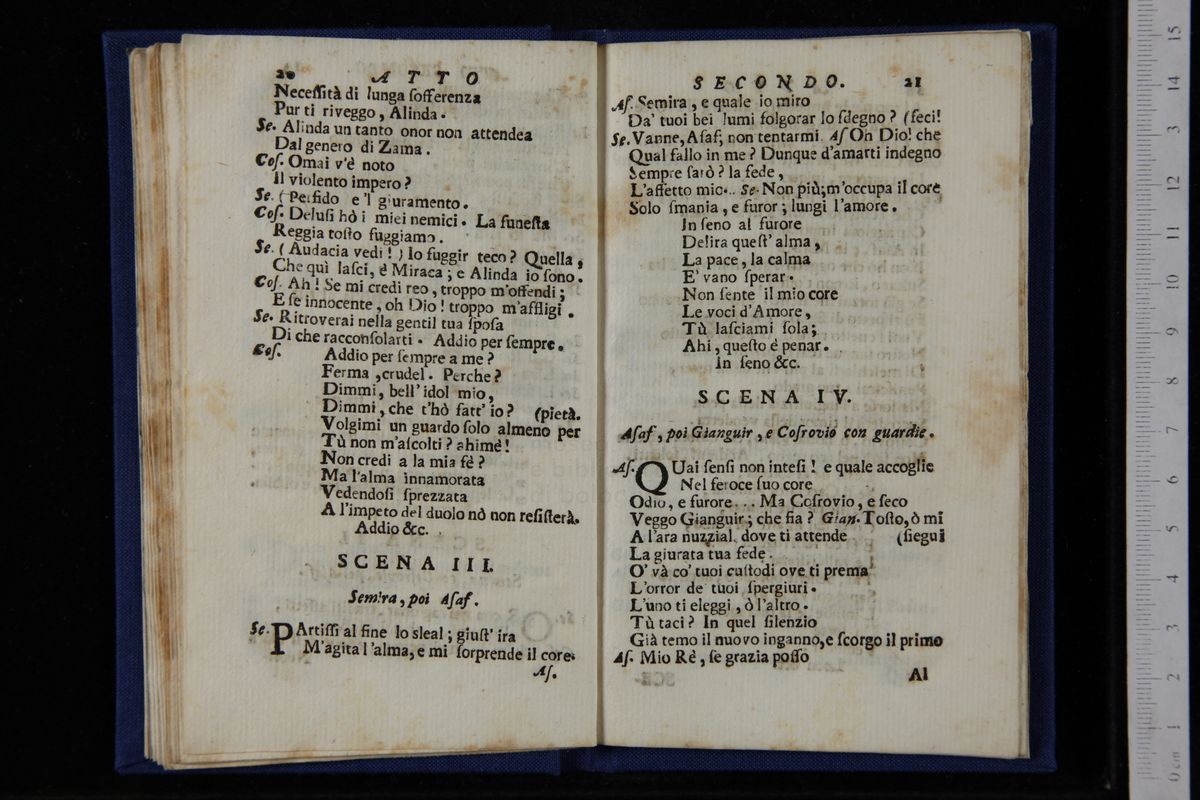 20 ATTO
Neceſſità di lunga ſofferenza
Pur ti riveggo, Alinda.
Se. Alinda un tanto onor non attendea
Dal genero di Zama.
Coſ. Omai v'è noto
Il violento impero?
Se. (Perfido e 'l giuramento.
Coſ. Deluſi hò i miei nemici. La funeſta
Reggia toſto fuggiamo.
Se. (Audacia vedi!) Io fuggir teco? Quella,
Che quì laſci, è Miraca; e Alinda io ſono.
Coſ. Ah! Se mi credi reo, troppo m'offendi;
E ſe innocente, oh Dio! troppo m'affligi.
Se. Ritroverai nella gentil tua ſpoſa
Di che racconſolarti. Addio per ſempre.
Coſ. Addio per ſempre a me?
Ferma, crudel. Perche?
Dimmi, bell' idol mio,
Dimmi, che t'hò fatt' io? (pietà.
Volgimi un guardo ſolo almeno per
Tù non m'aſcolti? ahimè!
Non credi a la mia fè?
Ma l'alma innamorata
Vedendoſi ſprezzata
A l'impeto del duolo nò non reſiſterà.
Addio &c.
SCENA III.
Semira, poi Aſaf.
Se. PArtiſſi al fine lo sleal; giuſt' ira
M'agita l'alma, e mi ſorprende il core.
Aſ.
SECONDO. 21
Aſ. Semira, e quale io miro
Da' tuoi bei lumi folgorar lo ſdegno? (feci!
Se. Vanne, Aſaf; non tentarmi. Aſ Oh Dio! che
Qual fallo in me? Dunque d'amarti indegno
Sempre ſarò? la fede,
L'affetto mio... Se. Non più; m'occupa il core
Solo ſmania, e furor; lungi l'amore.
In ſeno al furore
Delira queſt' alma,
La pace, la calma
E' vano ſperar.
Non ſente il mio core
Le voci d'Amore,
Tù laſciami ſola;
Ahi, queſto è penar.
In ſeno &c.
SCENA IV.
Aſaf, poi Gianguir, e Coſrovio con guardie.
Aſ. QUai ſenſi non inteſi! e quale accoglie
Nel feroce ſuo core
Odio, e furore... Ma Coſrovio, e ſeco
Veggo Gianguir; che fia? Gian. Toſto, ò mi
A l'ara nuzzial, dove ti attende (ſiegui
La giurata tua fede.
O' và co' tuoi cuſtodi ove ti prema
L'orror de' tuoi ſpergiuri.
L'uno ti eleggi, ò l'altro.
Tù taci? In quel ſilenzio
Già temo il nuovo inganno, e ſcorgo il primo
Aſ. Mio Rè, ſe grazia poſſo
Al